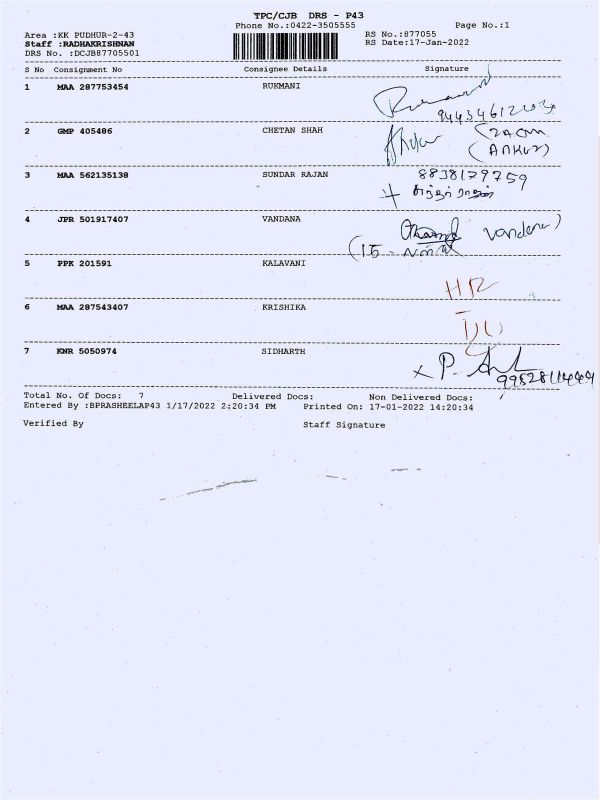 TPC/CJB DRS - P43
Phone No.:0422-3505555 Page No.:1
Area :KK PUDHUR-2-43 RS No.:877055
Staff :RADHAKRISHNAN RS Date:17-Jan-2022
DRS No. :DCJB87705501
S No Consignment No Consignee Details Signature
1 MAA 287753454 RUKMANI
2 GMP 405486 CHETAN SHAH
(ANKUR)
3 MAA 562135138 SUNDAR RAJAN 8838179759
சுந்தர் ராஜன்
4 JPR 501917407 VANDANA Vandana)
5 PPK 201591 KALAVANI
6 MAA 287543407 KRISHIKA
7 KNR 5050974 SIDHARTH
x P.
Total No. Of Docs: 7 Delivered Docs: Non Delivered Docs:
Entered By :BPRASHEELAP43 1/17/2022 2:20:34 PM Printed On: 17-01-2022 14:20:34
Verified By Staff Signature